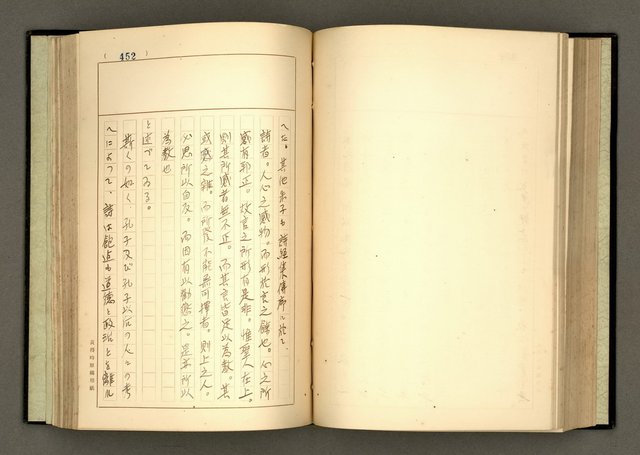 ( 452 )
へた。其他朱子も詩経集傳序に於て、
詩者。人心之感物。而形於言之餘也。心之所
感有邪正。故言之所形有是非。惟聖人在上。
則其所感者無不正。而其言皆足以為教。其
或感之雜。而所發不能無可擇者。則上之人。
必思所以自反。而因有以勸懲之。是亦所以
為教也
と述べてゐる。
斯くの如く、孔子及び孔子以后の人々の考
へによつて、詩は飽迄も道德と政治とを離れ